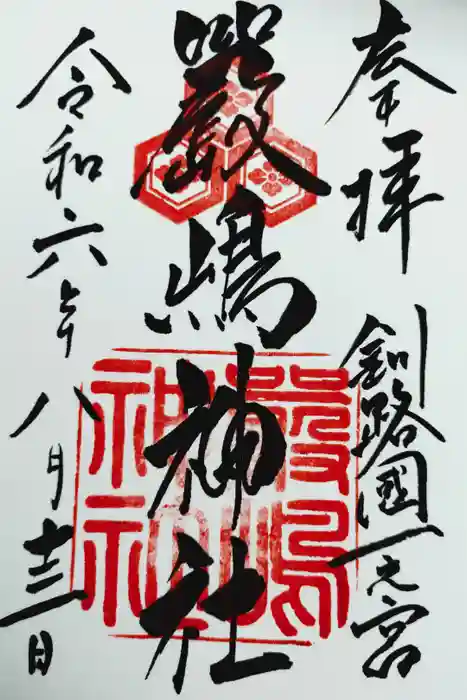 奉拝
釧路國一之宮
嚴嶋神社
令和六年八月十三日
嚴嶋
神社